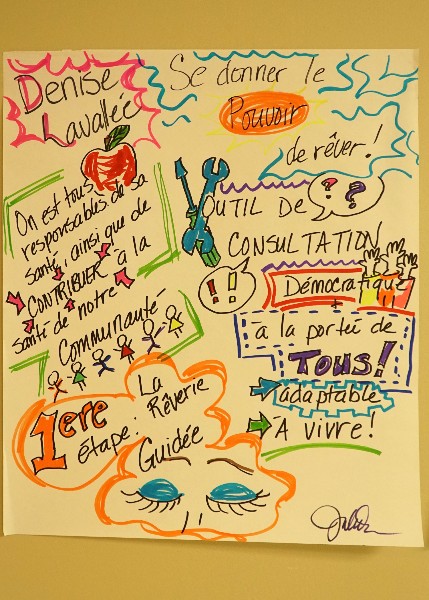 Denise
Lavallée
Se donner le
Pouvoir
de rêver!
On est tous
responsables de sa
santé, ainsi que de
CONTRIBUER à la
santé de notre
Communauté
OUTIL DE
? ?
CONSULTATION
!!
Démocratique
+
à la porteé de
TOUS!
adaptable
À vivre!
1ere
étape:
La
Rêverie
Guidée